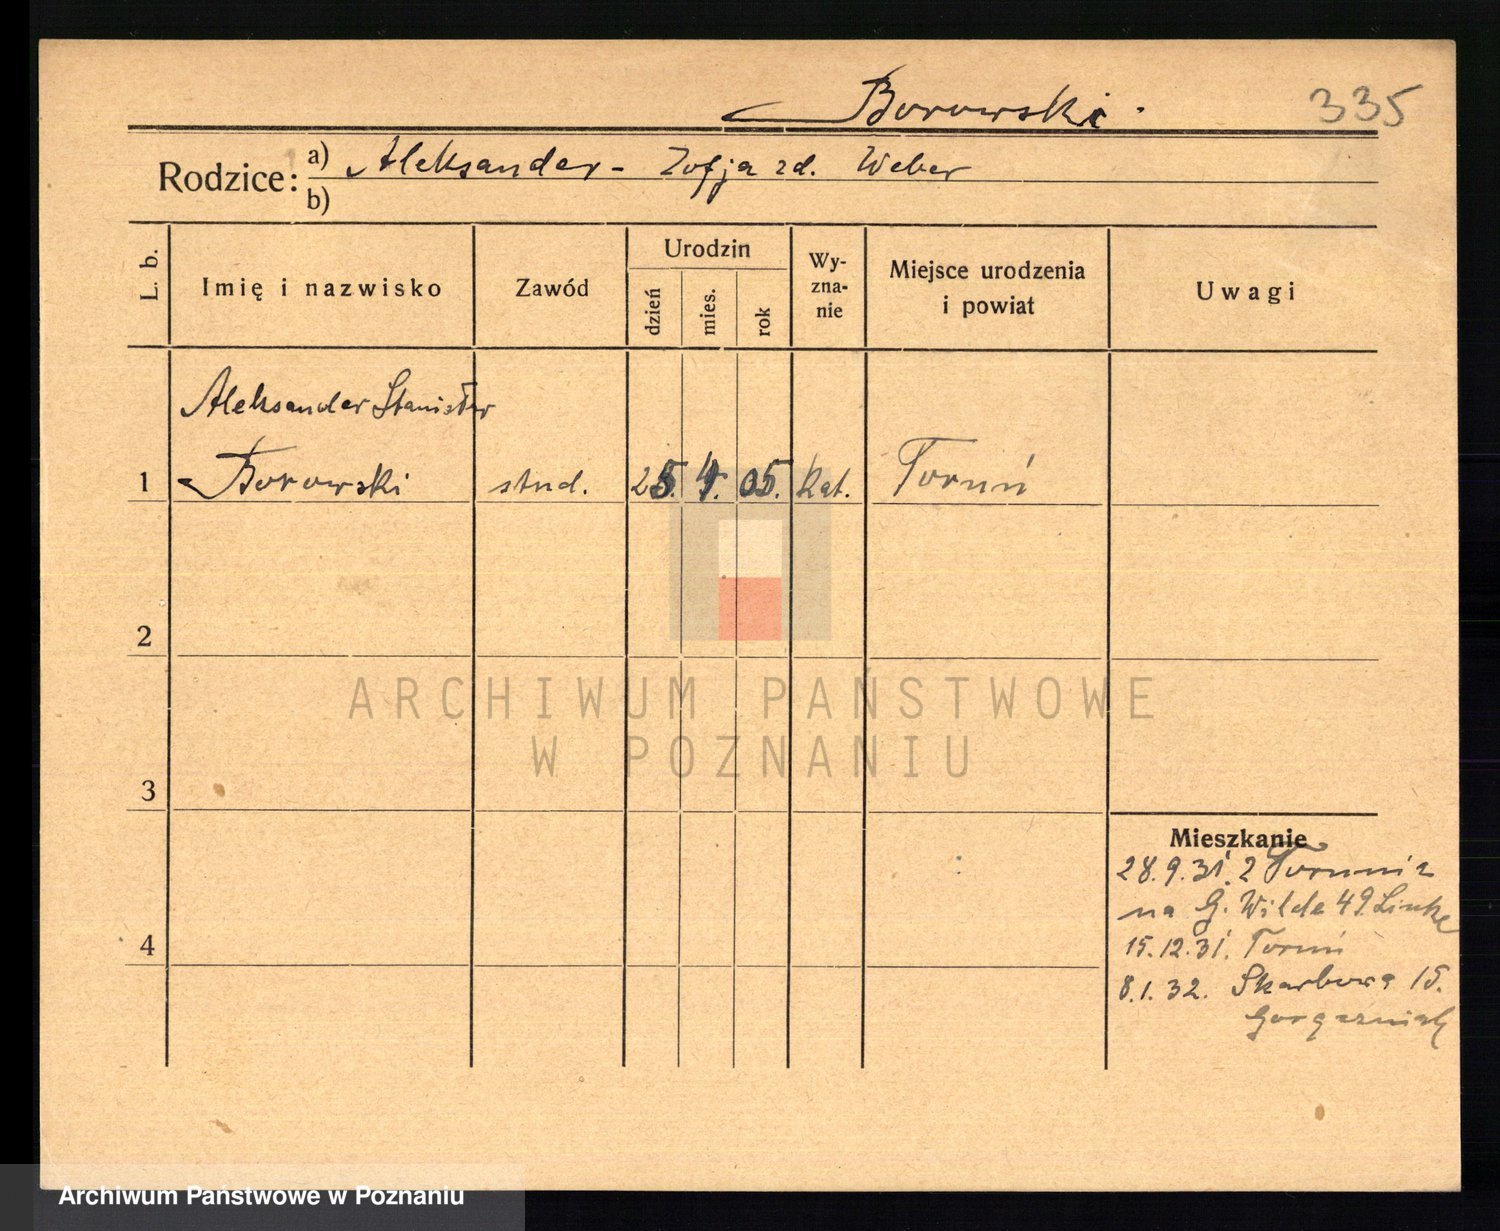 Borowski.
335
Rodzice: a) Aleksander - Zofja zd. Weber
b)
L. b.
Imię i nazwisko
Zawód
Urodzin
dzień
mies.
rok
Wy-
zna-
nie
Miejsce urodzenia
i powiat
Uwagi
Aleksander Stanisław
1 Borowski stud. 25. 4. 05. kat. Toruń
2
ARCHIWUM PAŃSTWOWE
W POZNANIU
3
4
Mieszkanie
28.9.31. z Torunia
na G. Wilda 49 Linke
15.12.31. Toruń
8.1.32. Skarbowa 15.
Archiwum Państwowe w Poznaniu